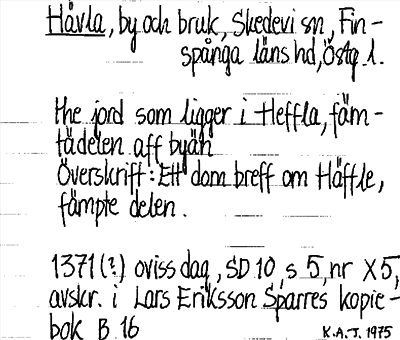 Hävla, by och bruk, Skedevi sn, Fin-
spånga läns hd, Östg. l.
the jord som ligger i Heffla, fäm-
tädelen aff byän
Överskrift: Ett dom breff om Häffle,
fämpte delen.
1371 (?) oviss dag, SD 10, s 5, nr X5,
avskr. i Lars Eriksson Sparres kopie-
bok B 16
K.A.J. 1975